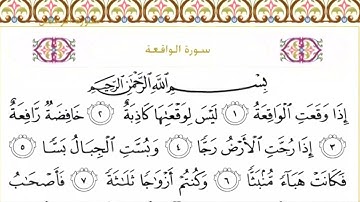 سورة الواقعة
بِسْمِ اللَّهِ الرَّحْمَٰنِ الرَّحِيمِ
إِذَا وَقَعَتِ الْوَاقِعَةُ ١ لَيْسَ لِوَقْعَتِهَا كَاذِبَةٌ ٢ خَافِضَةٌ رَّافِعَةٌ
٣ إِذَا رُجَّتِ الْأَرْضُ رَجًّا ٤ وَبُسَّتِ الْجِبَالُ بَسًّا ٥
فَكَانَتْ هَبَاءً مُّنْبَثًّا ٦ وَكُنتُمْ أَزْوَاجًا ثَلَاثَةً ٧ فَأَصْحَابُ